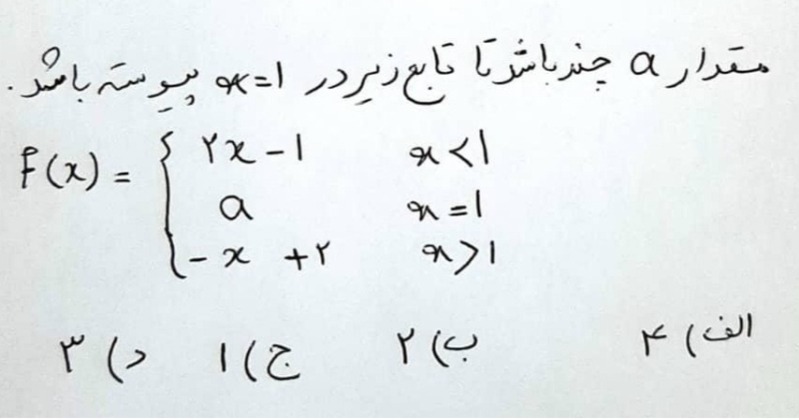 مقدار a چند باشد تا تابع زیر در x=1 پیوسته باشد.
f(x) = { ۲x - ۱    x < ۱
a    x = ۱
- x + ۲    x > ۱
الف) ۴    ب) ۲    ج) ۱    د) ۳